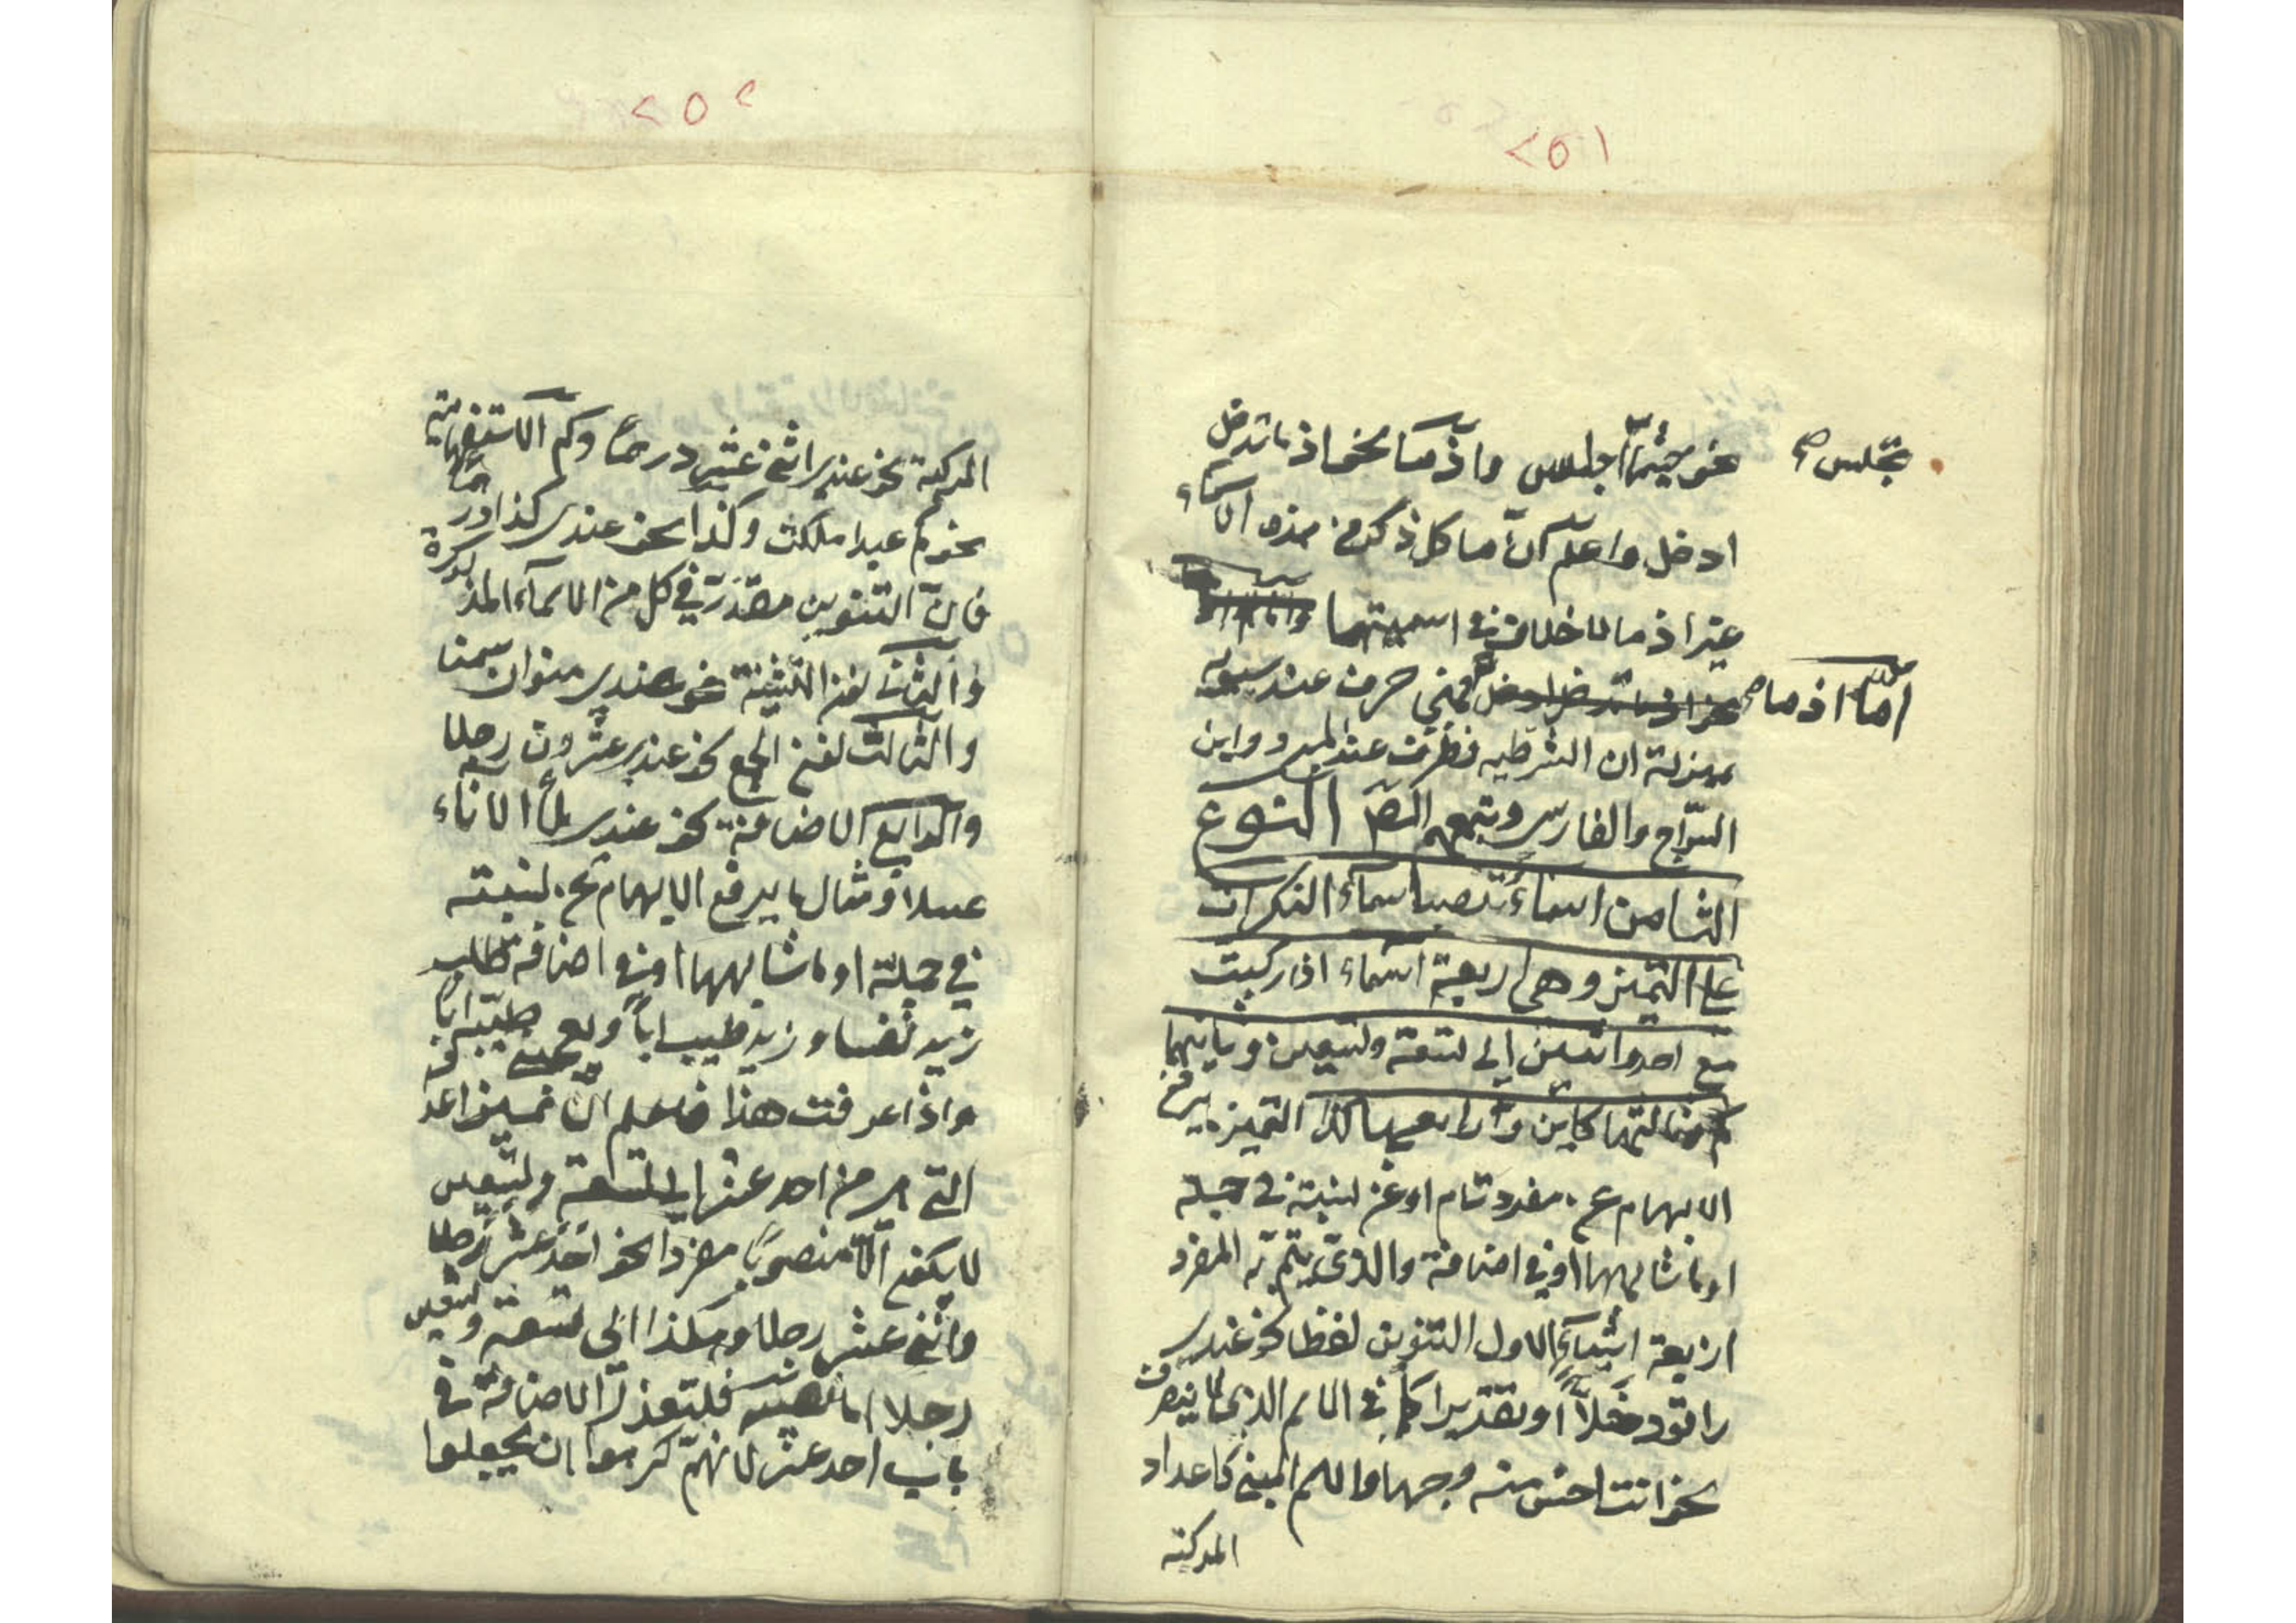 ٢٥١
نحو حيثما اجلس واذما نحو اذما تدخل
تجلس صح
ادخل واعلم انّ ما كل ذكر من هذه الاسماء
غير اذما لا خلاف في اسميتها
اما اذما صح
فهي حرف عند سيبويه
بمنزلة ان الشرطيه فظرف عند المبرد وابن
السّراج والفارسي وتبعهم المص النوع
الثامن اسماء تنصب اسماء النكرات
على التميز وهي اربعة اسماء اذا ركبت
مع احد واثنين الى تسعة وتسعين وثانيها
كم وثالثها كاين ورابعها كذا التميز ما يرفع
الابهام عن مفرد تام او عن نسبة في جملة
او ما شابهها او في اضافة والذي يتم به المفرد
اربعة اشياء الاول التنوين لفظا نحو عندي
راقود خلّاً او تقديرا كما في الاسم الذي لا ينصرف
نحو انت احسن منه وجها والاسم المبني كاعداد
المركبة
٢٥٢
المركبة نحو عندي اثني عشر درهما وكم الاستفهامية
نحو كم عبدا ملكت وكذا نحو عندي كذا درهما
فانّ التنوين مقدّر في كل من الاسماء المذكورة
والثاني نون التثنية نحو عندي منوان سمنا
والثالث نون الجمع نحو عندي عشرون رجلا
والرابع الاضافة نحو عندي ملأ الاناء
عسلا ومثال ما يرفع الابهام عن نسبته
في جملة او ما شابهها او في اضافة طاب
زيد نفسا وزيد طيب اباً و طيبه ابا
واذا عرفت هذا فاعلم انّ تميز اعد
التي من احد عشر الى تسعة وتسعين
لا يكون الّا منصوبا مفردا نحو احد عشر رجلا
واثني عشر رجلا وهكذا الى تسعة وتسعين
رجلا اما نصبه فلتعذر الاضافة في
باب احد عشر لانهم كرهوا ان يجعلوا